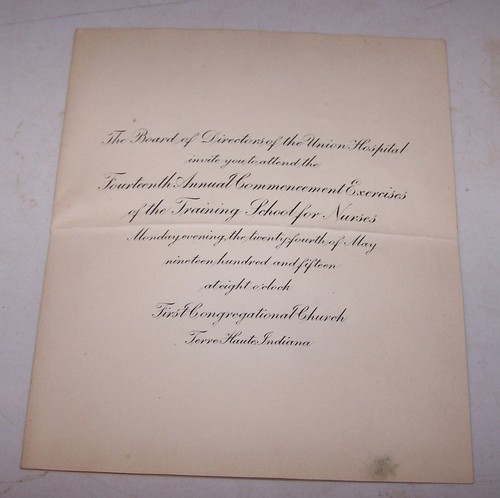 The Board of Directors of the Union Hospital
invite you to attend the
Fourteenth Annual Commencement Exercises
of the Training School for Nurses
Monday evening, the twenty-fourth of May
nineteen hundred and fifteen
at eight o'clock
First Congregational Church
Terre Haute, Indiana